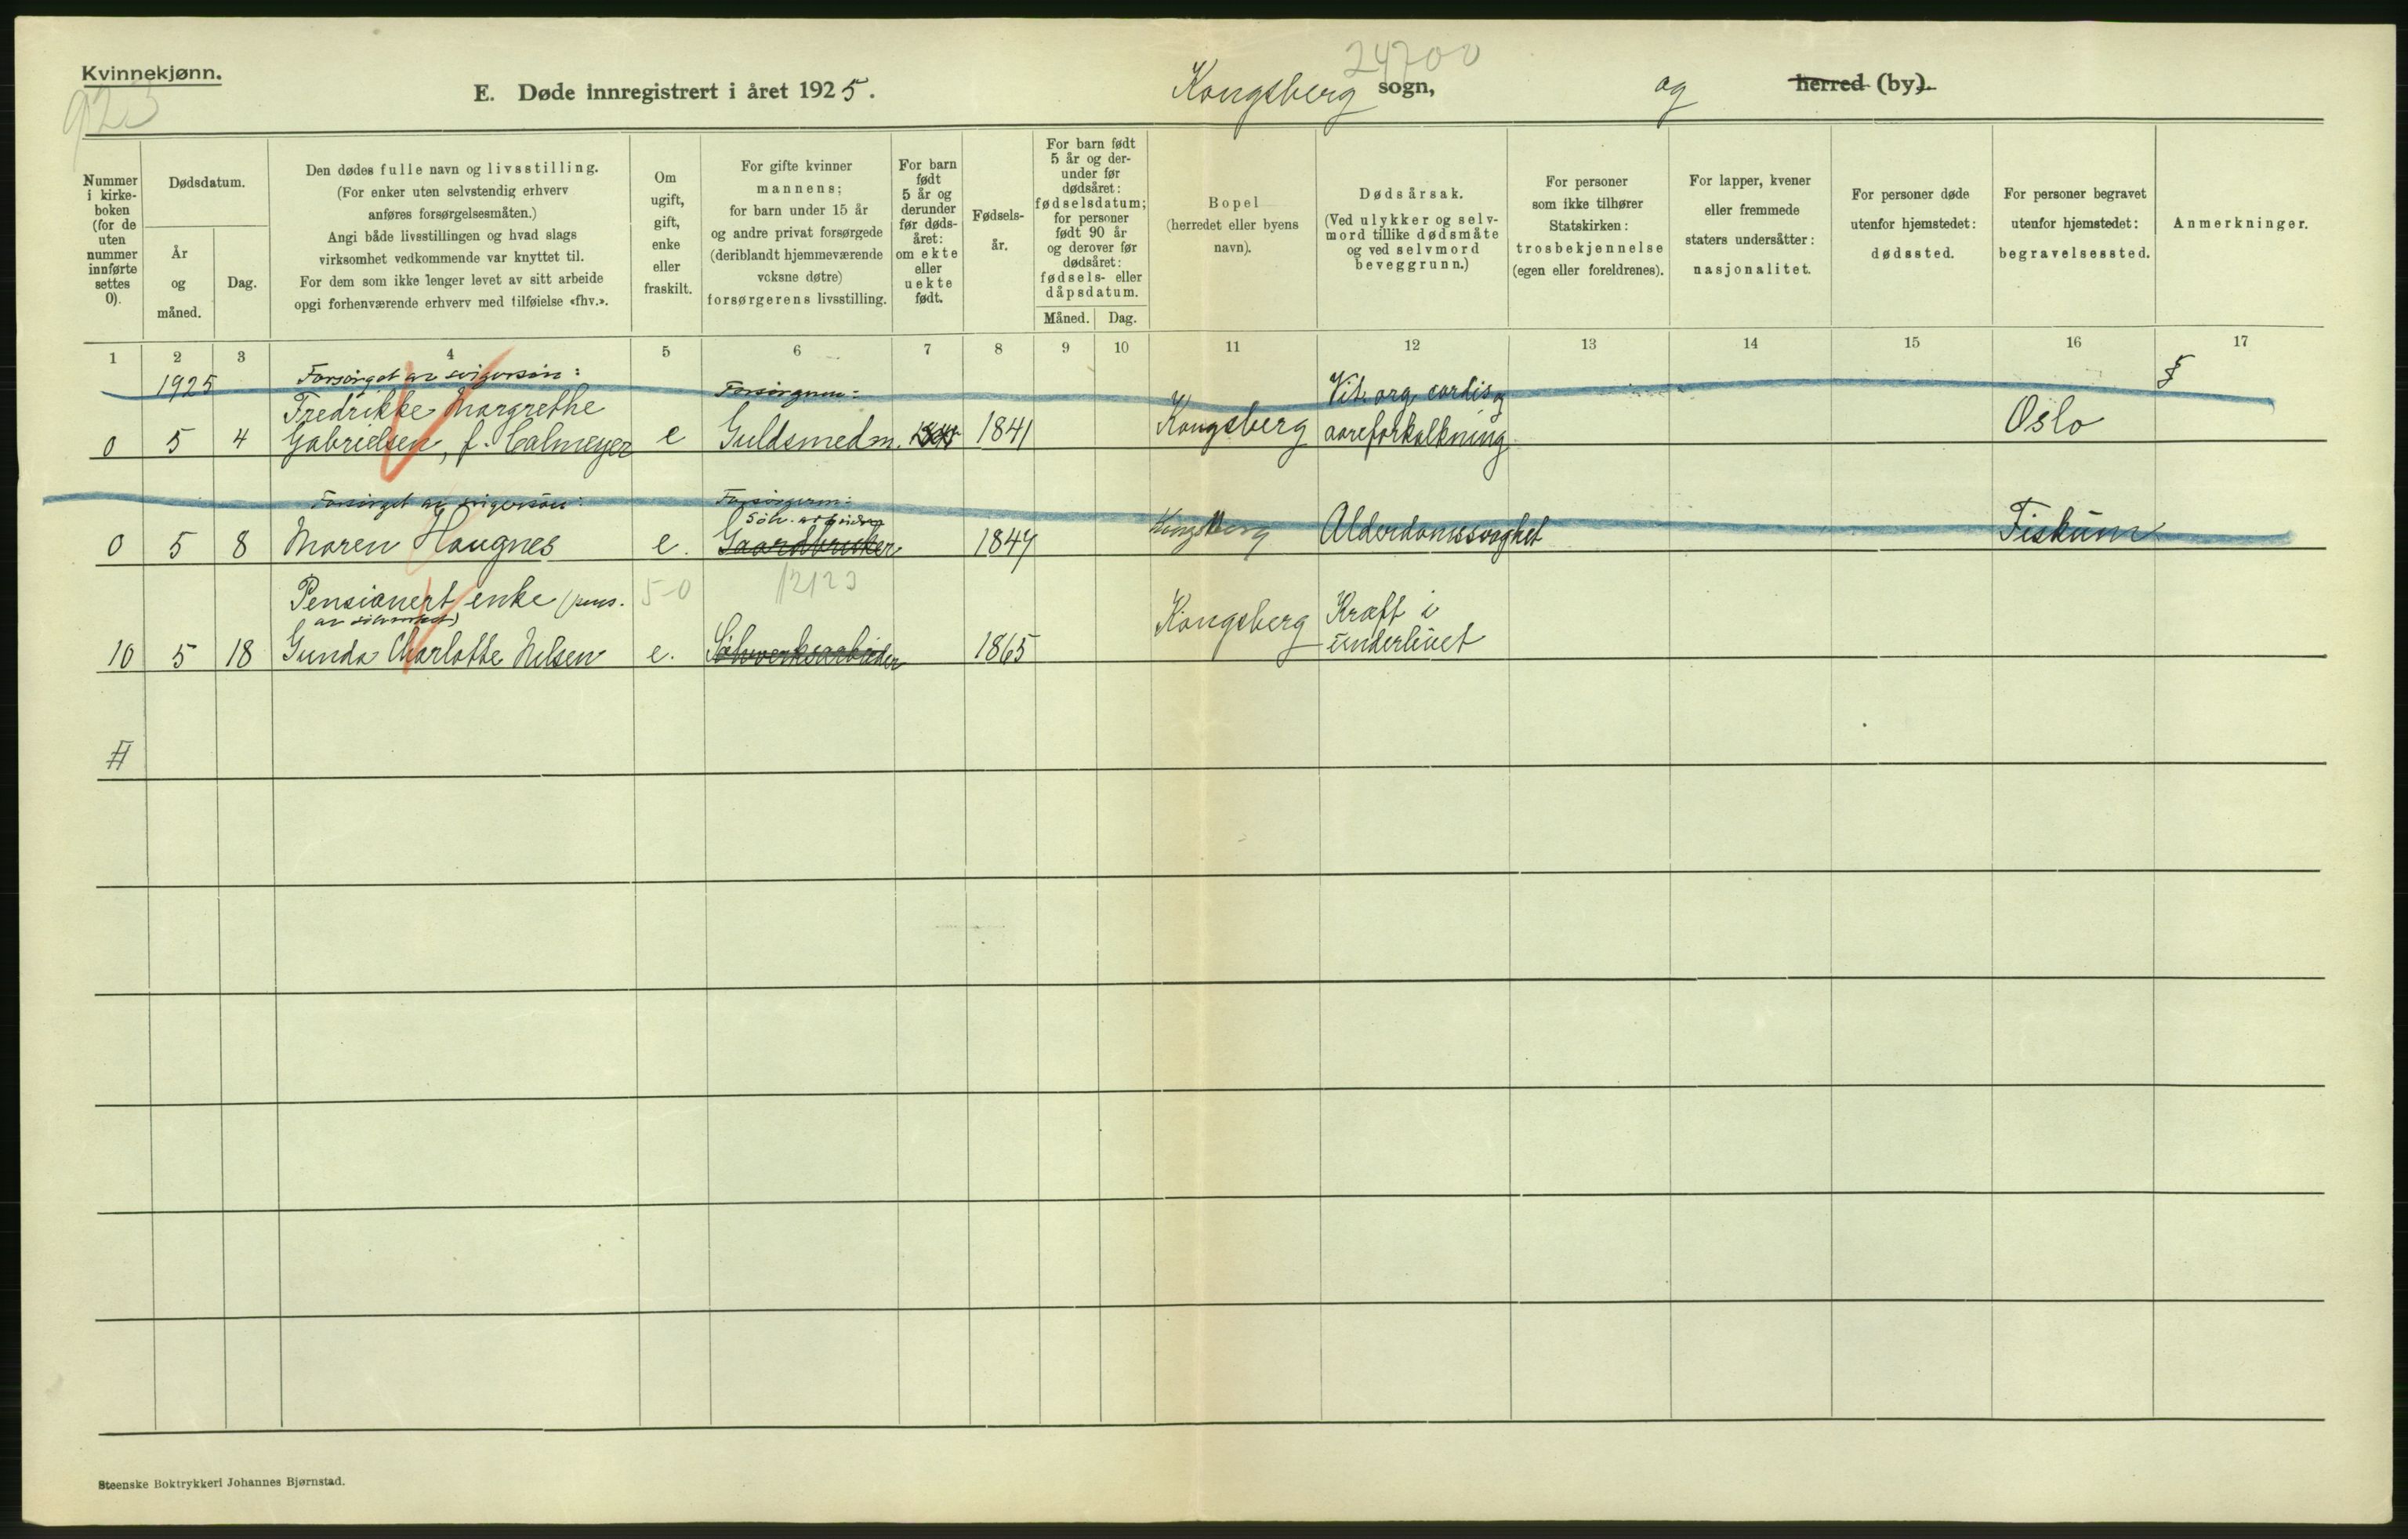 Kvinnekjønn.
923
E. Døde innregistrert i året 1925.
24700
Kongsberg sogn, og herred (by).
Nummer i kirke-boken (for de uten nummer innførte settes 0).
Dødsdatum.
År og måned.
Dag.
Den dødes fulle navn og livsstilling.
(For enker uten selvstendig erhverv
anføres forsørgelsesmåten.)
Angi både livsstillingen og hvad slags
virksomhet vedkommende var knyttet til.
For dem som ikke lenger levet av sitt arbeide
opgi forhenværende erhverv med tilføielse «fhv.».
Om
ugift,
gift,
enke
eller
fraskilt.
For gifte kvinner
mannens;
for barn under 15 år
og andre privat forsørgede
(deriblandt hjemmeværende
voksne døtre)
forsørgerens livsstilling.
For barn
født
5 år og
derunder
før døds-
året:
om ekte
eller
uekte
født.
Fødsels-
år.
For barn født
5 år og der-
under før
dødsåret:
fødselsdatum;
for personer
født 90 år
og derover før
dødsåret:
fødsels- eller
dåpsdatum.
Måned. Dag.
Bopel
(herredet eller byens
navn).
Dødsårsak.
(Ved ulykker og selv-
mord tillike dødsmåte
og ved selvmord
beveggrunn.)
For personer
som ikke tilhører
Statskirken:
trosbekjennelse
(egen eller foreldrenes).
For lapper, kvener
eller fremmede
staters undersåtter:
nasjonalitet.
For personer døde
utenfor hjemstedet:
dødssted.
For personer begravet
utenfor hjemstedet:
begravelsessted.
Anmerkninger.
1 2 3 4 5 6 7 8 9 10 11 12 13 14 15 16 17
1925 Forsörget av svigersön: Forsörgeren: Vit. org. cordis og §
Fredrikke Margrethe
0 5 4 Gabrielsen, f. Calmeyer e Guldsmedm. 1841 Kongsberg aareforkalkning Oslo
Forsörget av svigersön: Forsörgeren:
Sölv. arbeider
0 5 8 Maren Haugnes e. Gaardbruker 1847 Kongsberg Alderdomssvaghet Fiskum
Pensionert enke (pens. 50 12123
av sölvverket) Kongsberg Kræft i
10 5 18 Gunda Charlotte Nilsen e. Sölvverksarbeider 1865 underlivet
#
Steenske Boktrykkeri Johannes Bjørnstad.